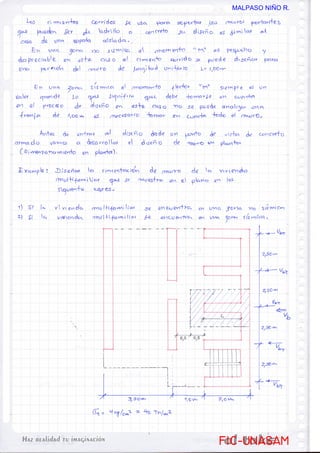 MALPASO NIÑO R.
Los cimientos corridos se usa para soportar los muros portantes,
que pueden ser de ladrillo o concreto su diseño es similar al
caso de una zapata aislada.
En una zona no sísmica el momento "m" es pequeño y
despreciable en este caso el cimiento corrido se puede diseñar para
una porción del muro de longitud unitaria L= 1,00m
En una zona sísmica el momento "m" siempre es un
valor grande lo que significa que debe tomarse en cuenta
en el proceso de diseño en este caso no se puede analizar una
franja de 1,00m es necesario tomar en cuenta todo el muro.
Antes de entrar al diseño desde un punto de vista de concreto
armado vamos a desarrollar el diseño de muro en planta
(Dimensionamiento en planta).
Example: Diseñar la cimentación de muro de la vivienda
multifamiliar que se muestra en el plano en los
siguientes casos.
1) Si la vivienda multifamiliar se encuentra en una zona no sísmica
2) Si la vivienda multifamiliar se encuentra en una zona sísmica.
2,50m
2,50m
0,5
0,5
3,00m
1,0m
Haz realidad tu imaginación
FIC-UNASAM